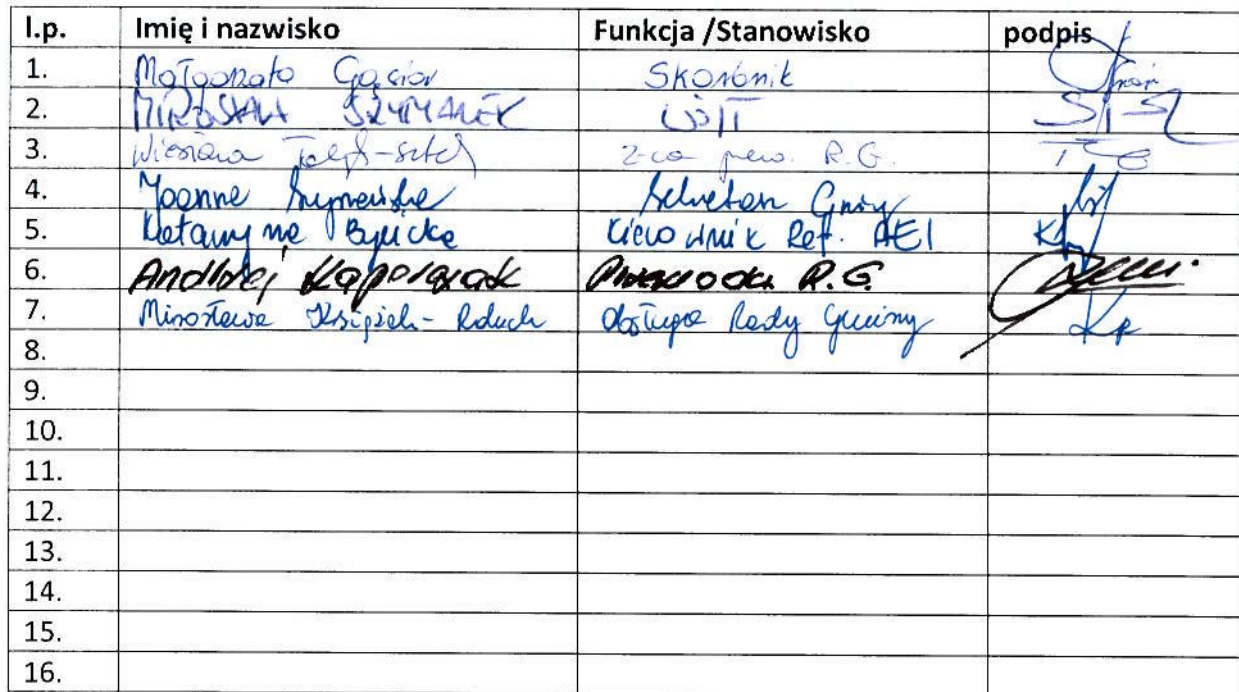 l.p. Imię i nazwisko Funkcja /Stanowisko podpis
1. Małgorzata Gąsior Skarbnik
2. MIROSŁAW SZYMANEK WÓJT
3. Wiesława z-ca przew. R.G.
4. Joanna Szymańska Sekretarz Gminy
5. Katarzyna Bylicka Kierownik Ref. AEI
6. Andrzej Kacprzak R.G.
7. Mirosława Książek-Roduch obsługa Rady Gminy
8.
9.
10.
11.
12.
13.
14.
15.
16.